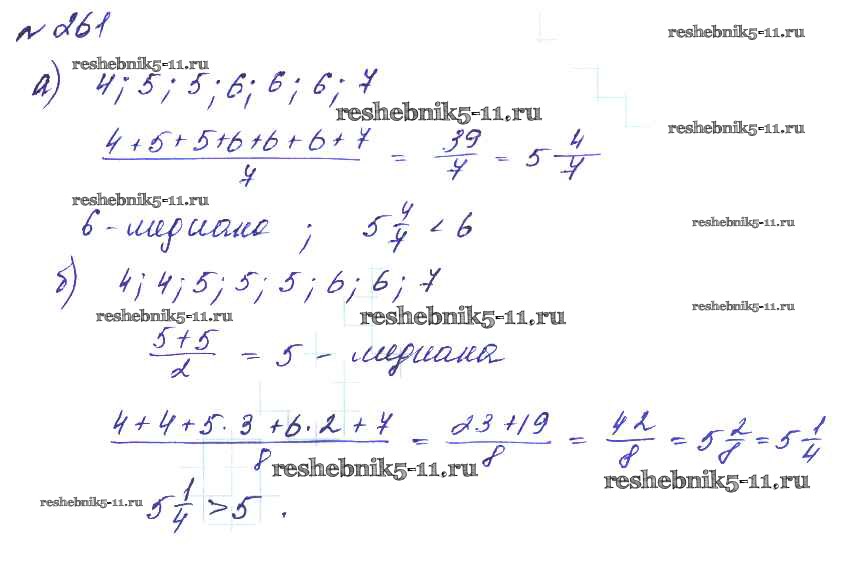 № 261
reshebnik5-11.ru
reshebnik5-11.ru
а) 4; 5; 5; 6; 6; 6; 7
reshebnik5-11.ru
reshebnik5-11.ru
(4+5+5+6+6+6+7)/7 = 39/7 = 5 4/7
reshebnik5-11.ru
reshebnik5-11.ru
6 - медиана ; 5 4/7 < 6
б) 4; 4; 5; 5; 5; 6; 6; 7
reshebnik5-11.ru
reshebnik5-11.ru
reshebnik5-11.ru
(5+5)/2 = 5 - медиана
(4+4+5·3+6·2+7)/8 = (23+19)/8 = 42/8 = 5 2/8 = 5 1/4
reshebnik5-11.ru
reshebnik5-11.ru
reshebnik5-11.ru
5 1/4 > 5 .